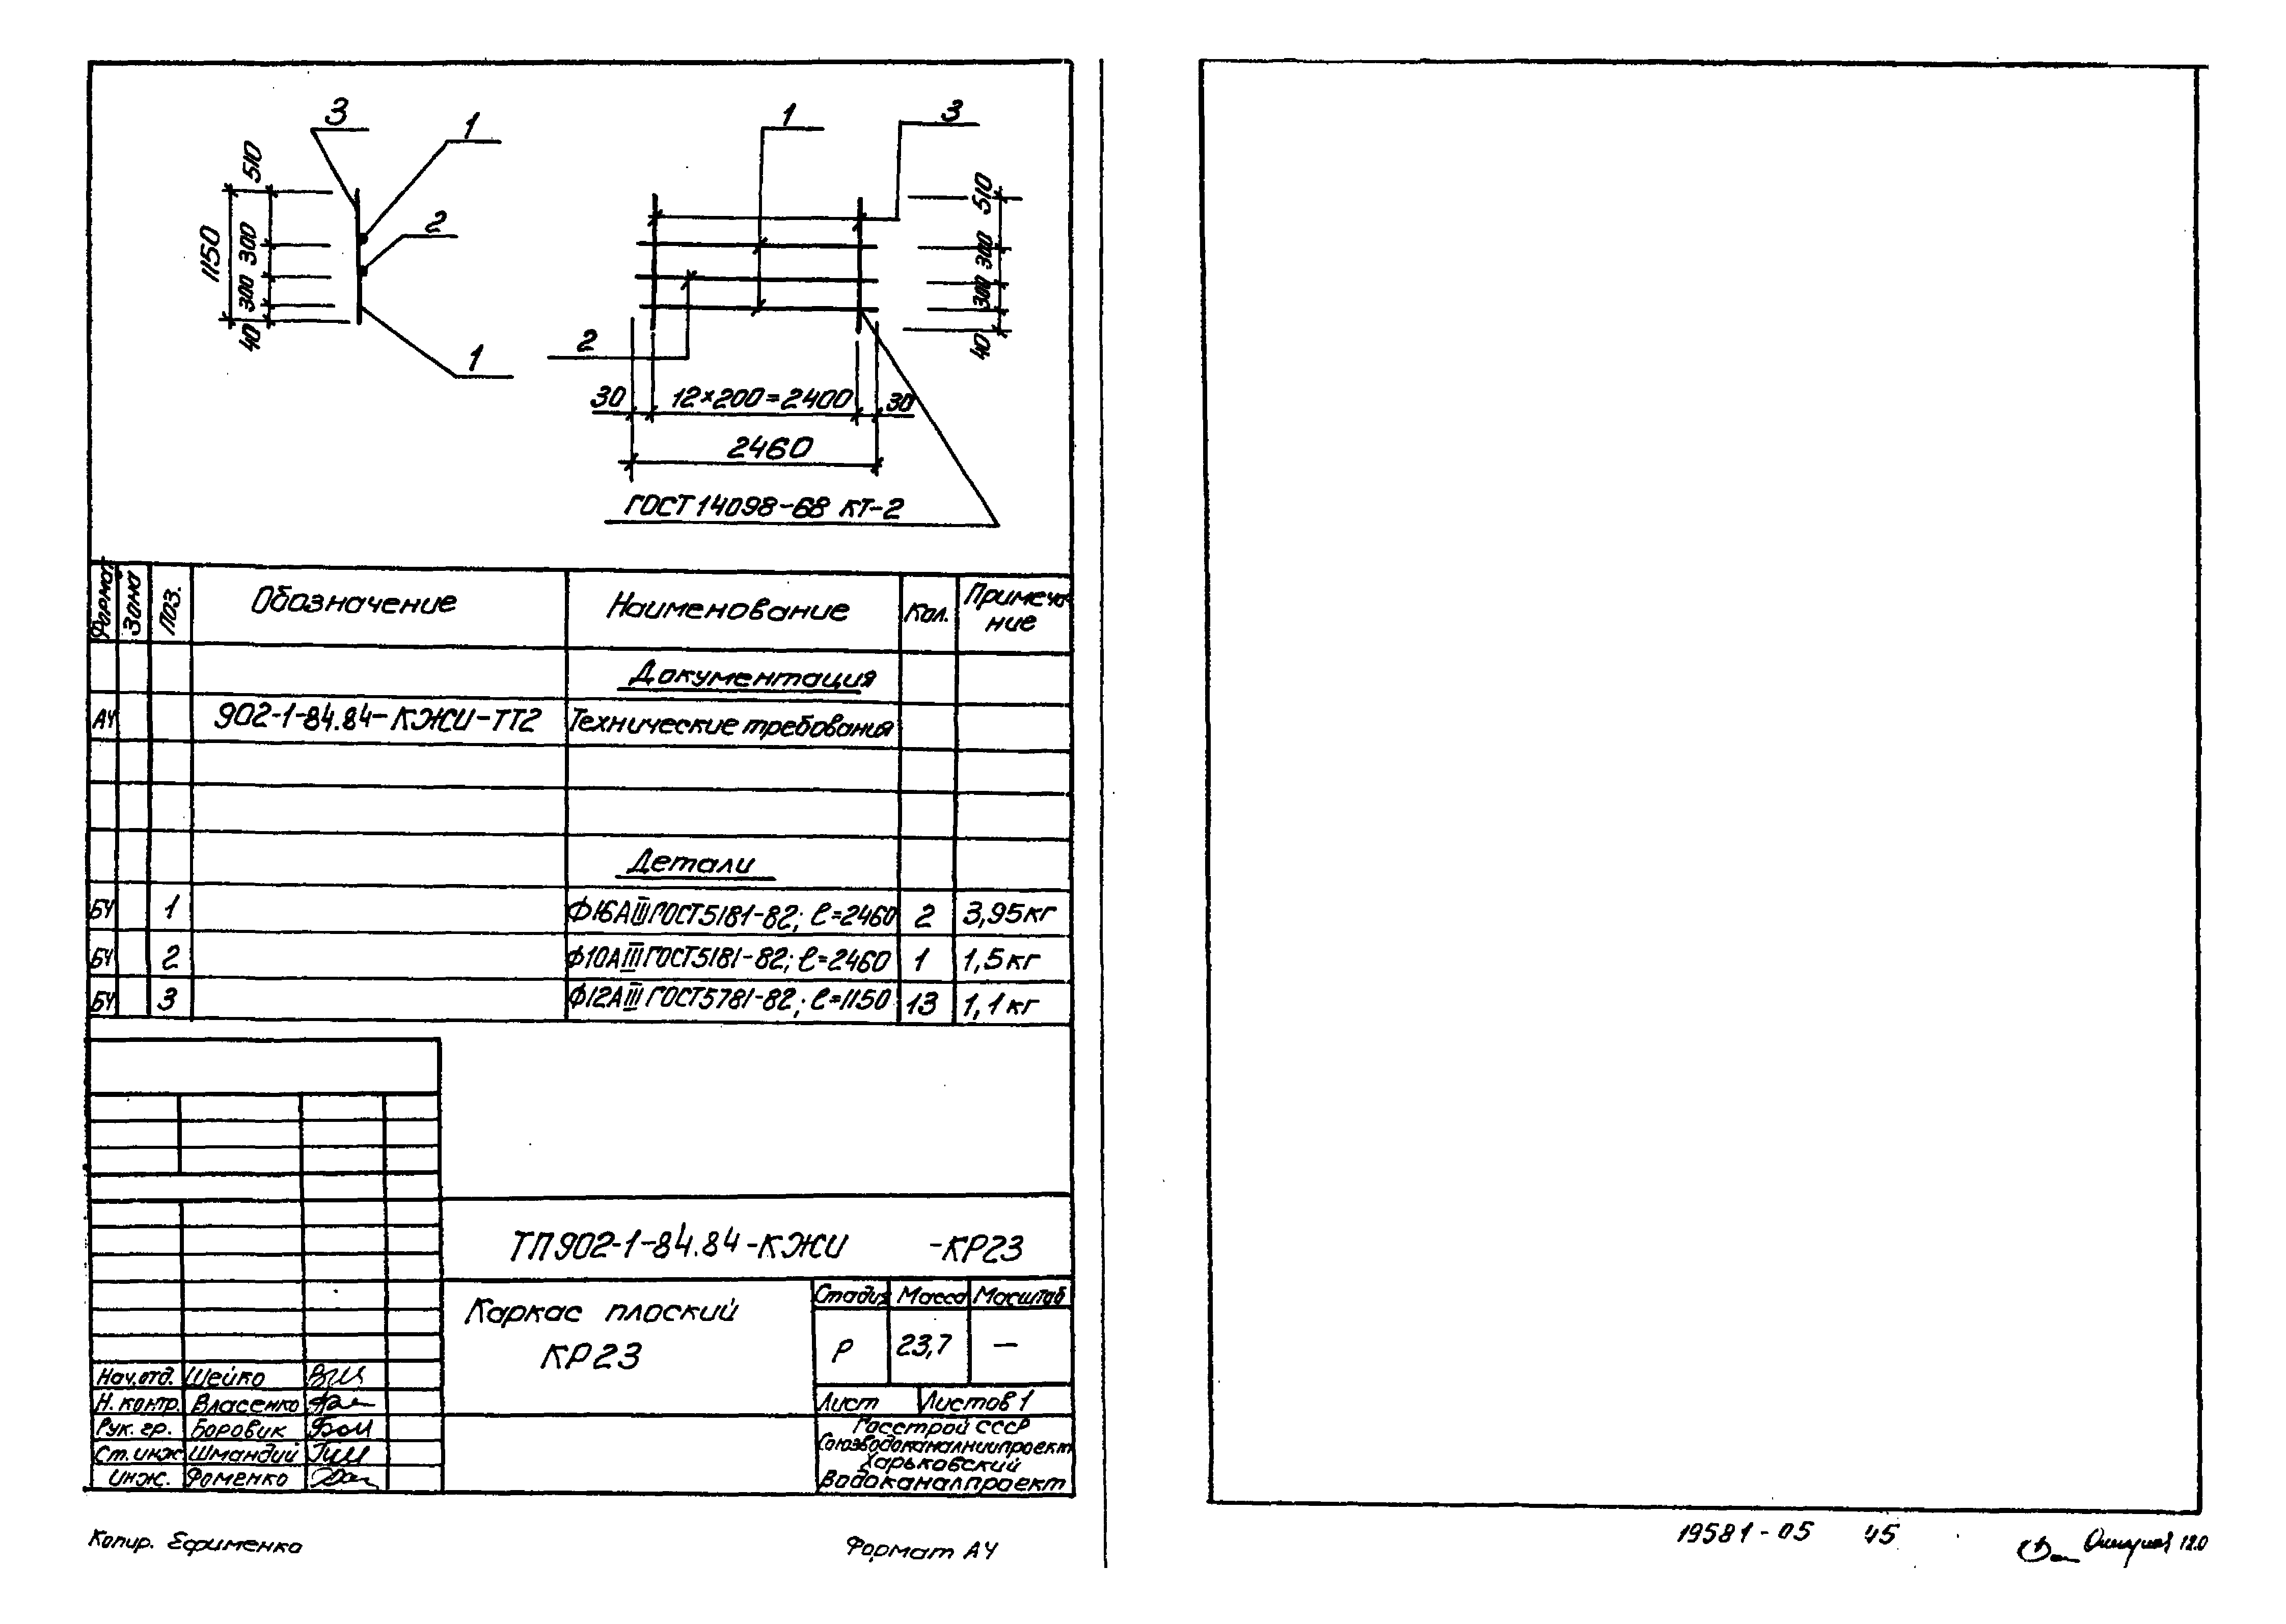 3
1
1
3
510
300
300
40
1150
2
1
2
510
300
300
40
30
12×200=2400
30
2460
ГОСТ 14098-68 КТ-2
Формат Зона Поз. Обозначение Наименование Кол. Примеча-
ние
Документация
А4 902-1-84.84-КЖИ-ТТ2 Технические требования
Детали
БЧ 1 Ф16АIII ГОСТ5181-82; ℓ=2460 2 3,95кг
БЧ 2 Ф10АIII ГОСТ5181-82; ℓ=2460 1 1,5кг
БЧ 3 Ф12АIII ГОСТ5781-82; ℓ=1150 13 1,1кг
ТП902-1-84.84-КЖИ -КР23
Каркас плоский
КР23
Стадия Масса Масштаб
Р 23,7 —
Лист Листов 1
Госстрой СССР
Союзводоканалниипроект
Харьковский
Водоканалпроект
Нач.отд. Шейко
Н. контр. Власенко
Рук. гр. Боровик
Ст. инж Шмандий
инж. Фоменко
Копир. Ефименко
Формат А4
19581-05 45